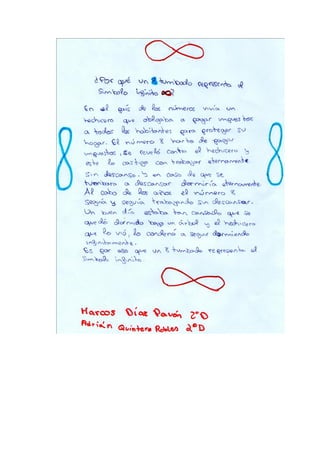 ¿Por qué un 8 tumbado representa el
símbolo infinito ∞?
En el país de los números vivía un
hechicero que obligaba a pagar impuestos
a todos los habitantes para proteger su
hogar. El número 8 harto de pagar
impuestos, se reveló contra el hechicero y
este lo castigó con trabajar eternamente
sin descanso. Y en caso de que se
tumbara a descansar dormiría eternamente.
Al cabo de los años el número 8
seguía y seguía trabajando sin descansar.
Un buen día estaba tan cansado que se
quedó dormido bajo un árbol y el hechicero
que lo vió, lo condenó a seguir durmiendo
infinitamente.
Es por eso que un 8 tumbado representa el
símbolo infinito.
Marcos Díaz Pavón 2ºD
Adrián Quintero Robles 2ºD